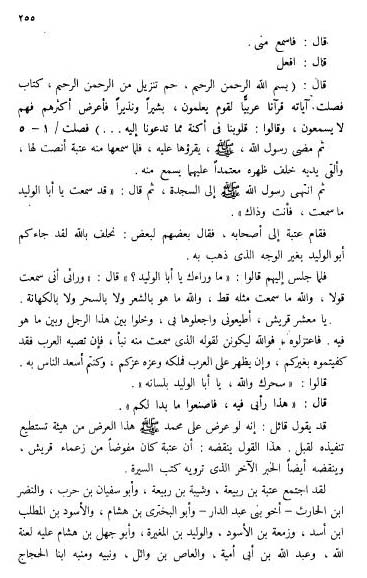 ٢٥٥
قال : فاسمع منى .
قال : افعل
قال : ( بسم الله الرحمن الرحيم ، حم تنزيل من الرحمن الرحيم ، كتاب
فصلت آياته قرآنا عربيًّا لقوم يعلمون ، بشيراً ونذيراً فأعرض أكثرهم فهم
لا يسمعون ، وقالوا : قلوبنا فى أكنة مما تدعونا إليه ...) فصلت / ١ – ٥
ثم مضى رسول الله ، ﷺ ، يقرؤها عليه ، فلما سمعها منه عتبة أنصت لها ،
وألقى يديه خلف ظهره معتمداً عليهما يسمع منه .
ثم انتهى رسول الله ﷺ إلى السجدة ، ثم قال : « قد سمعت يا أبا الوليد
ما سمعت ، فأنت وذاك » .
فقام عتبة إلى أصحابه ، فقال بعضهم لبعض : نحلف بالله لقد جاءكم
أبو الوليد بغير الوجه الذى ذهب به .
فلما جلس إليهم قالوا : « ما وراءك يا أبا الوليد ؟ » قال : « ورائى أنى سمعت
قولا ، والله ما سمعت مثله قط ، والله ما هو بالشعر ولا بالسحر ولا بالكهانة .
يا معشر قريش ، أطيعونى واجعلوها بى ، وخلوا بين هذا الرجل وبين ما هو
فيه . فاعتزلوه ، فوالله ليكونن لقوله الذى سمعت منه نبأ ، فإن تصبه العرب فقد
كفيتموه بغيركم ، وإن يظهر على العرب فملكه ملككم وعزه عزكم ، وكنتم أسعد الناس به .
قالوا : « سحرك والله ، يا أبا الوليد بلسانه » .
قال : « هذا رأيى فيه ، فاصنعوا ما بدا لكم » .
قد يقول قائل : إنه لو عرض على محمد ﷺ هذا العرض من هيئة تستطيع
تنفيذه لقبل . هذا القول ينقضه : أن عتبة كان مفوضاً من زعماء قريش ،
وينقضه أيضاً الخبر الآخر الذى ترويه كتب السيرة .
لقد اجتمع عتبة بن ربيعة ، وشيبة بن ربيعة ، وأبو سفيان بن حرب ، والنضر
ابن الحارث – أخو بنى عبد الدار – وأبو البخترى بن هشام ، والأسود بن المطلب
ابن أسد ، وزمعة بن الأسود ، والوليد بن المغيرة ، وأبو جهل بن هشام عليه لعنة
الله ، وعبد الله بن أبى أمية ، والعاص بن وائل ، ونبيه ومنبه ابنا الحجاج